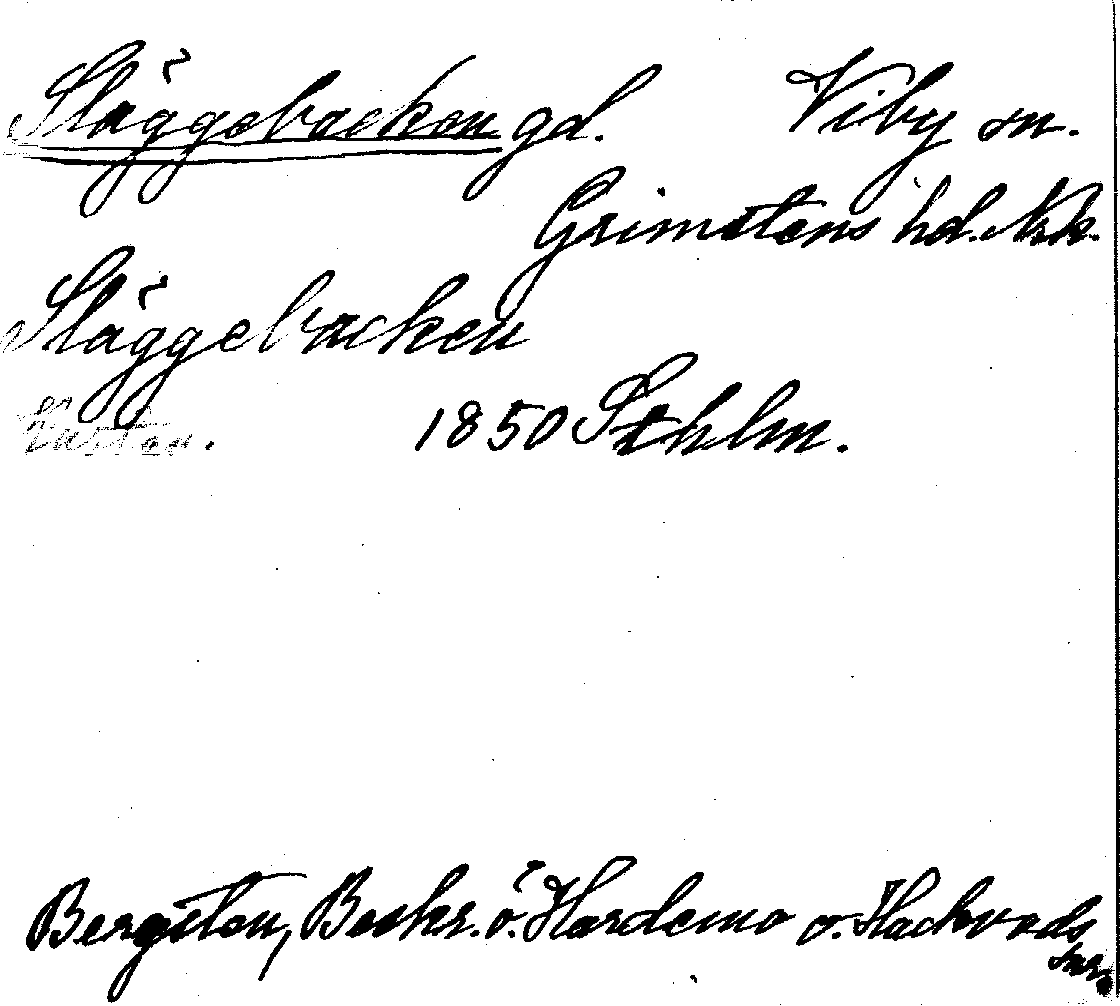 Släggebacken gd. Viby sn.
Grimstens hd. Nrk.
Släggebacken
Kartan. 1850 Sthlm.
Bergsten, Beskr. ö. Hardemo o. Hackvads
snr.